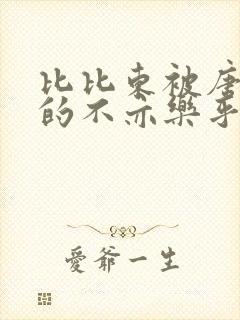 比比东被唐
的不亦樂乎
愛爺一生